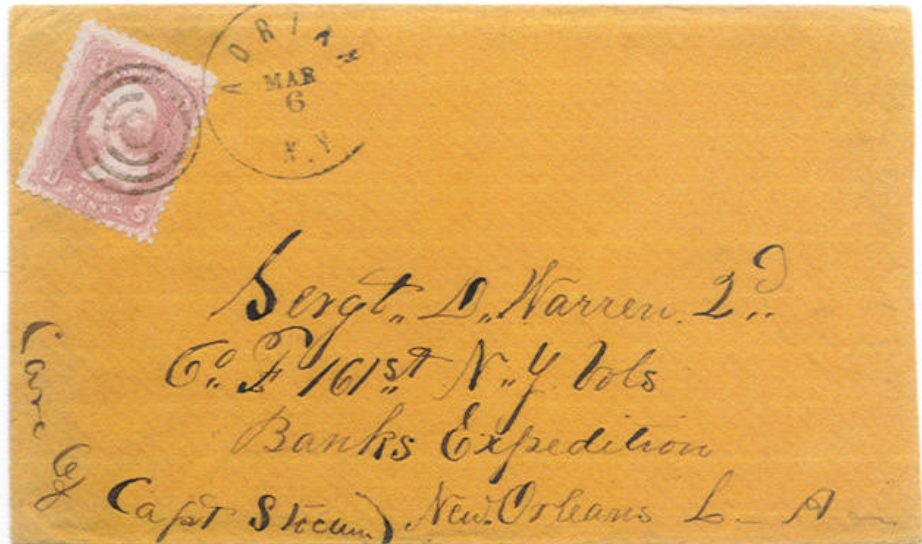 ADRIAN
MAR
6
N.Y
Sergt,, D,, Warren. 2,,d
Co,, F 161,,st N,,Y. Vols
Banks Expedition
New. Orleans L - A -
Care Of
Capt Slocum